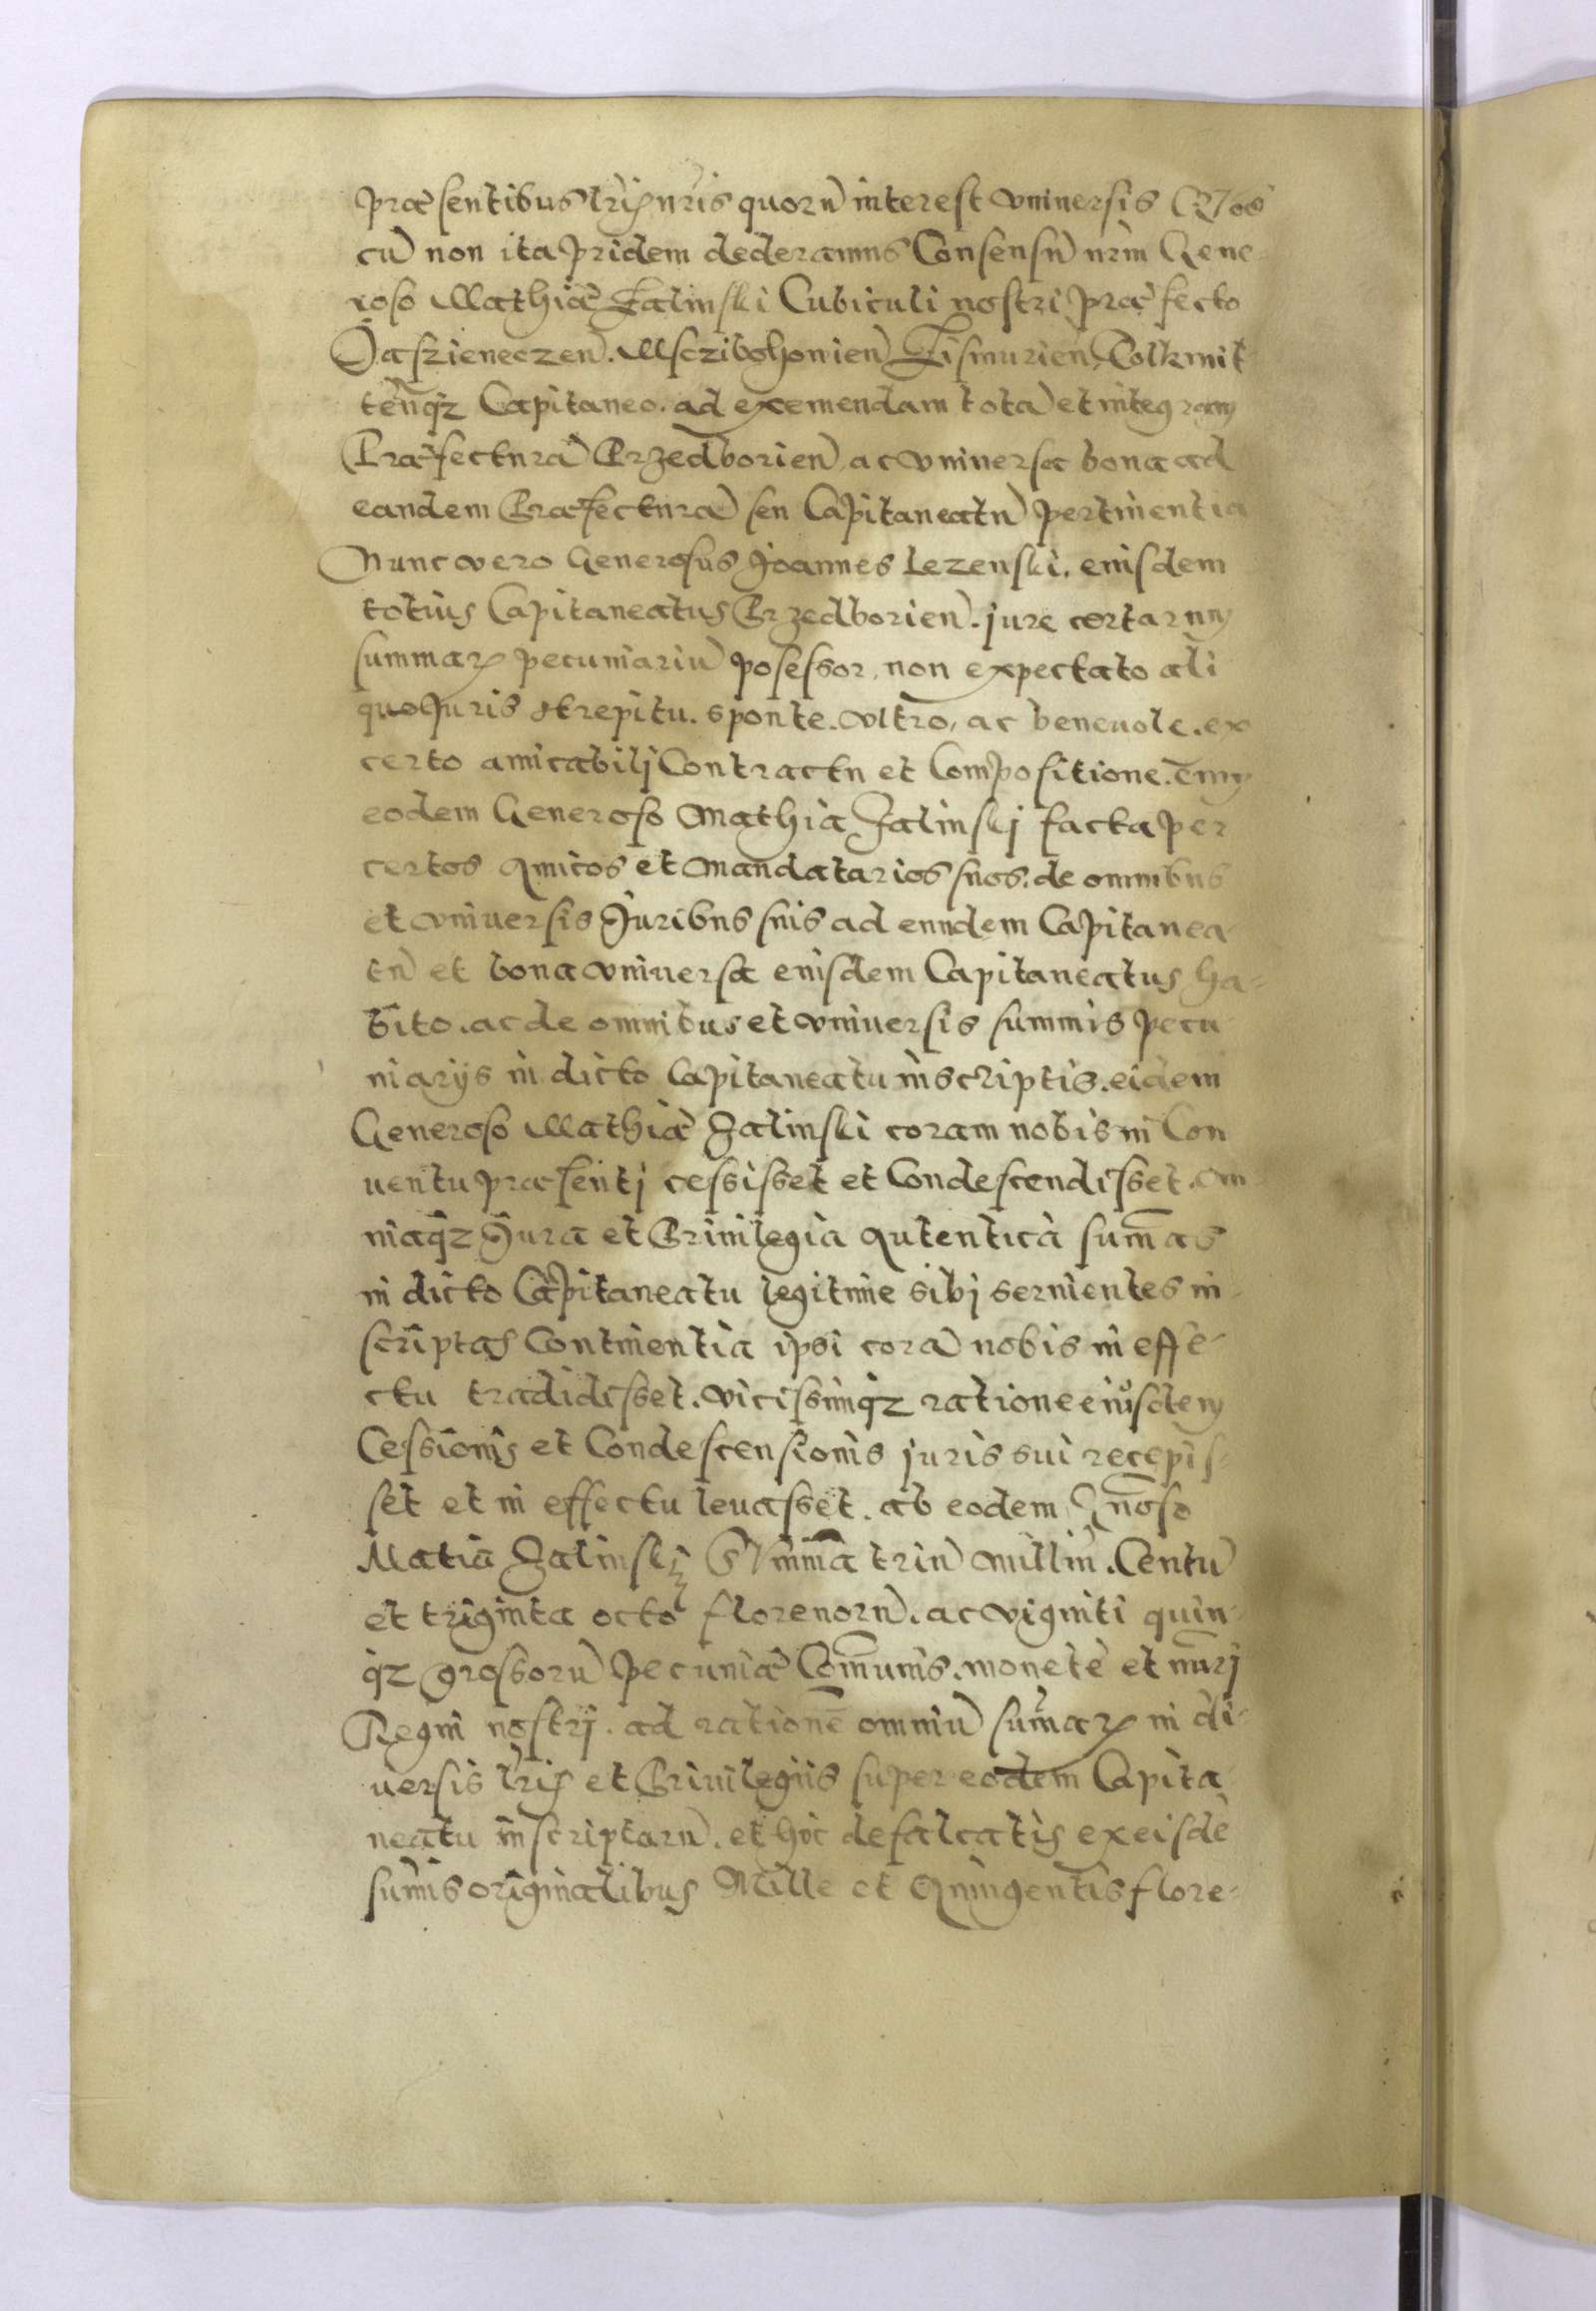 præsentibus lr̃is nr̃is quorū interest vniuersis Quos
cū non ita pridem dederamus Consensū nr̃m Gene-
roso Mathiæ Zalinski Cubiculi nostri præfecto
Jaszieneczen̄. Msczibohowien̄ Zismurien̄, Tolkmit-
ten̄q; Capitaneo. ad exemendam totā et integram
Præfecturā Przedborien̄, ac vniuersa bona ad
eandem Præfecturā seu Capitaneatū pertinentia
Nunc vero Generosus Joannes Lezenski. eiusdem
totius Capitaneatus Przedborien̄. jure certarum
summaꝝ pecuniariū possessor, non expectato ali
quo Juris strepitu. sponte. vltro, ac beneuole. ex
certo amicabilj Contractu et Compositione. cum
eodem Generoso Mathia Zalinskj facta per
certos Amicos et Mandatarios suos. de omnibus
et vniuersis Juribus suis ad eundem Capitanea-
tū et bona vniuersa eiusdem Capitaneatus ha-
bito. ac de omnibus et vniuersis summis pecu
niarijs in dicto Capitaneatu inscriptis. eidem
Generoso Mathiæ Zalinski coram nobis in Con
uentu præsentj cessisset et Condescendisset. om
niaq; Jura et Priuilegia Autentica sum̄as
in dicto Capitaneatu legitime sibj seruientes in-
scriptas Continentia ipsi corā nobis in effe-
ctu tradidisset. vicissimq; ratione eiusdem
Cessionis et Condescensionis juris sui recepis-
set et in effectu leuasset. ab eodem Gn̄oso
Matia Zalinski Sum̄mā triū Milliū. Centū
et triginta octo florenorū. ac viginti quin-
q; grossorū pecuniæ Com̄unis. monetè et nūrj
Regni nostrj. ad rationē omniū sum̄aꝝ in di-
uersis lr̃is et Priuilegiis super eodem Capita-
neatu inscriptarū. et hoc defalcatis ex eisdē
sum̄is originalibus Mille et Quingentis flore-